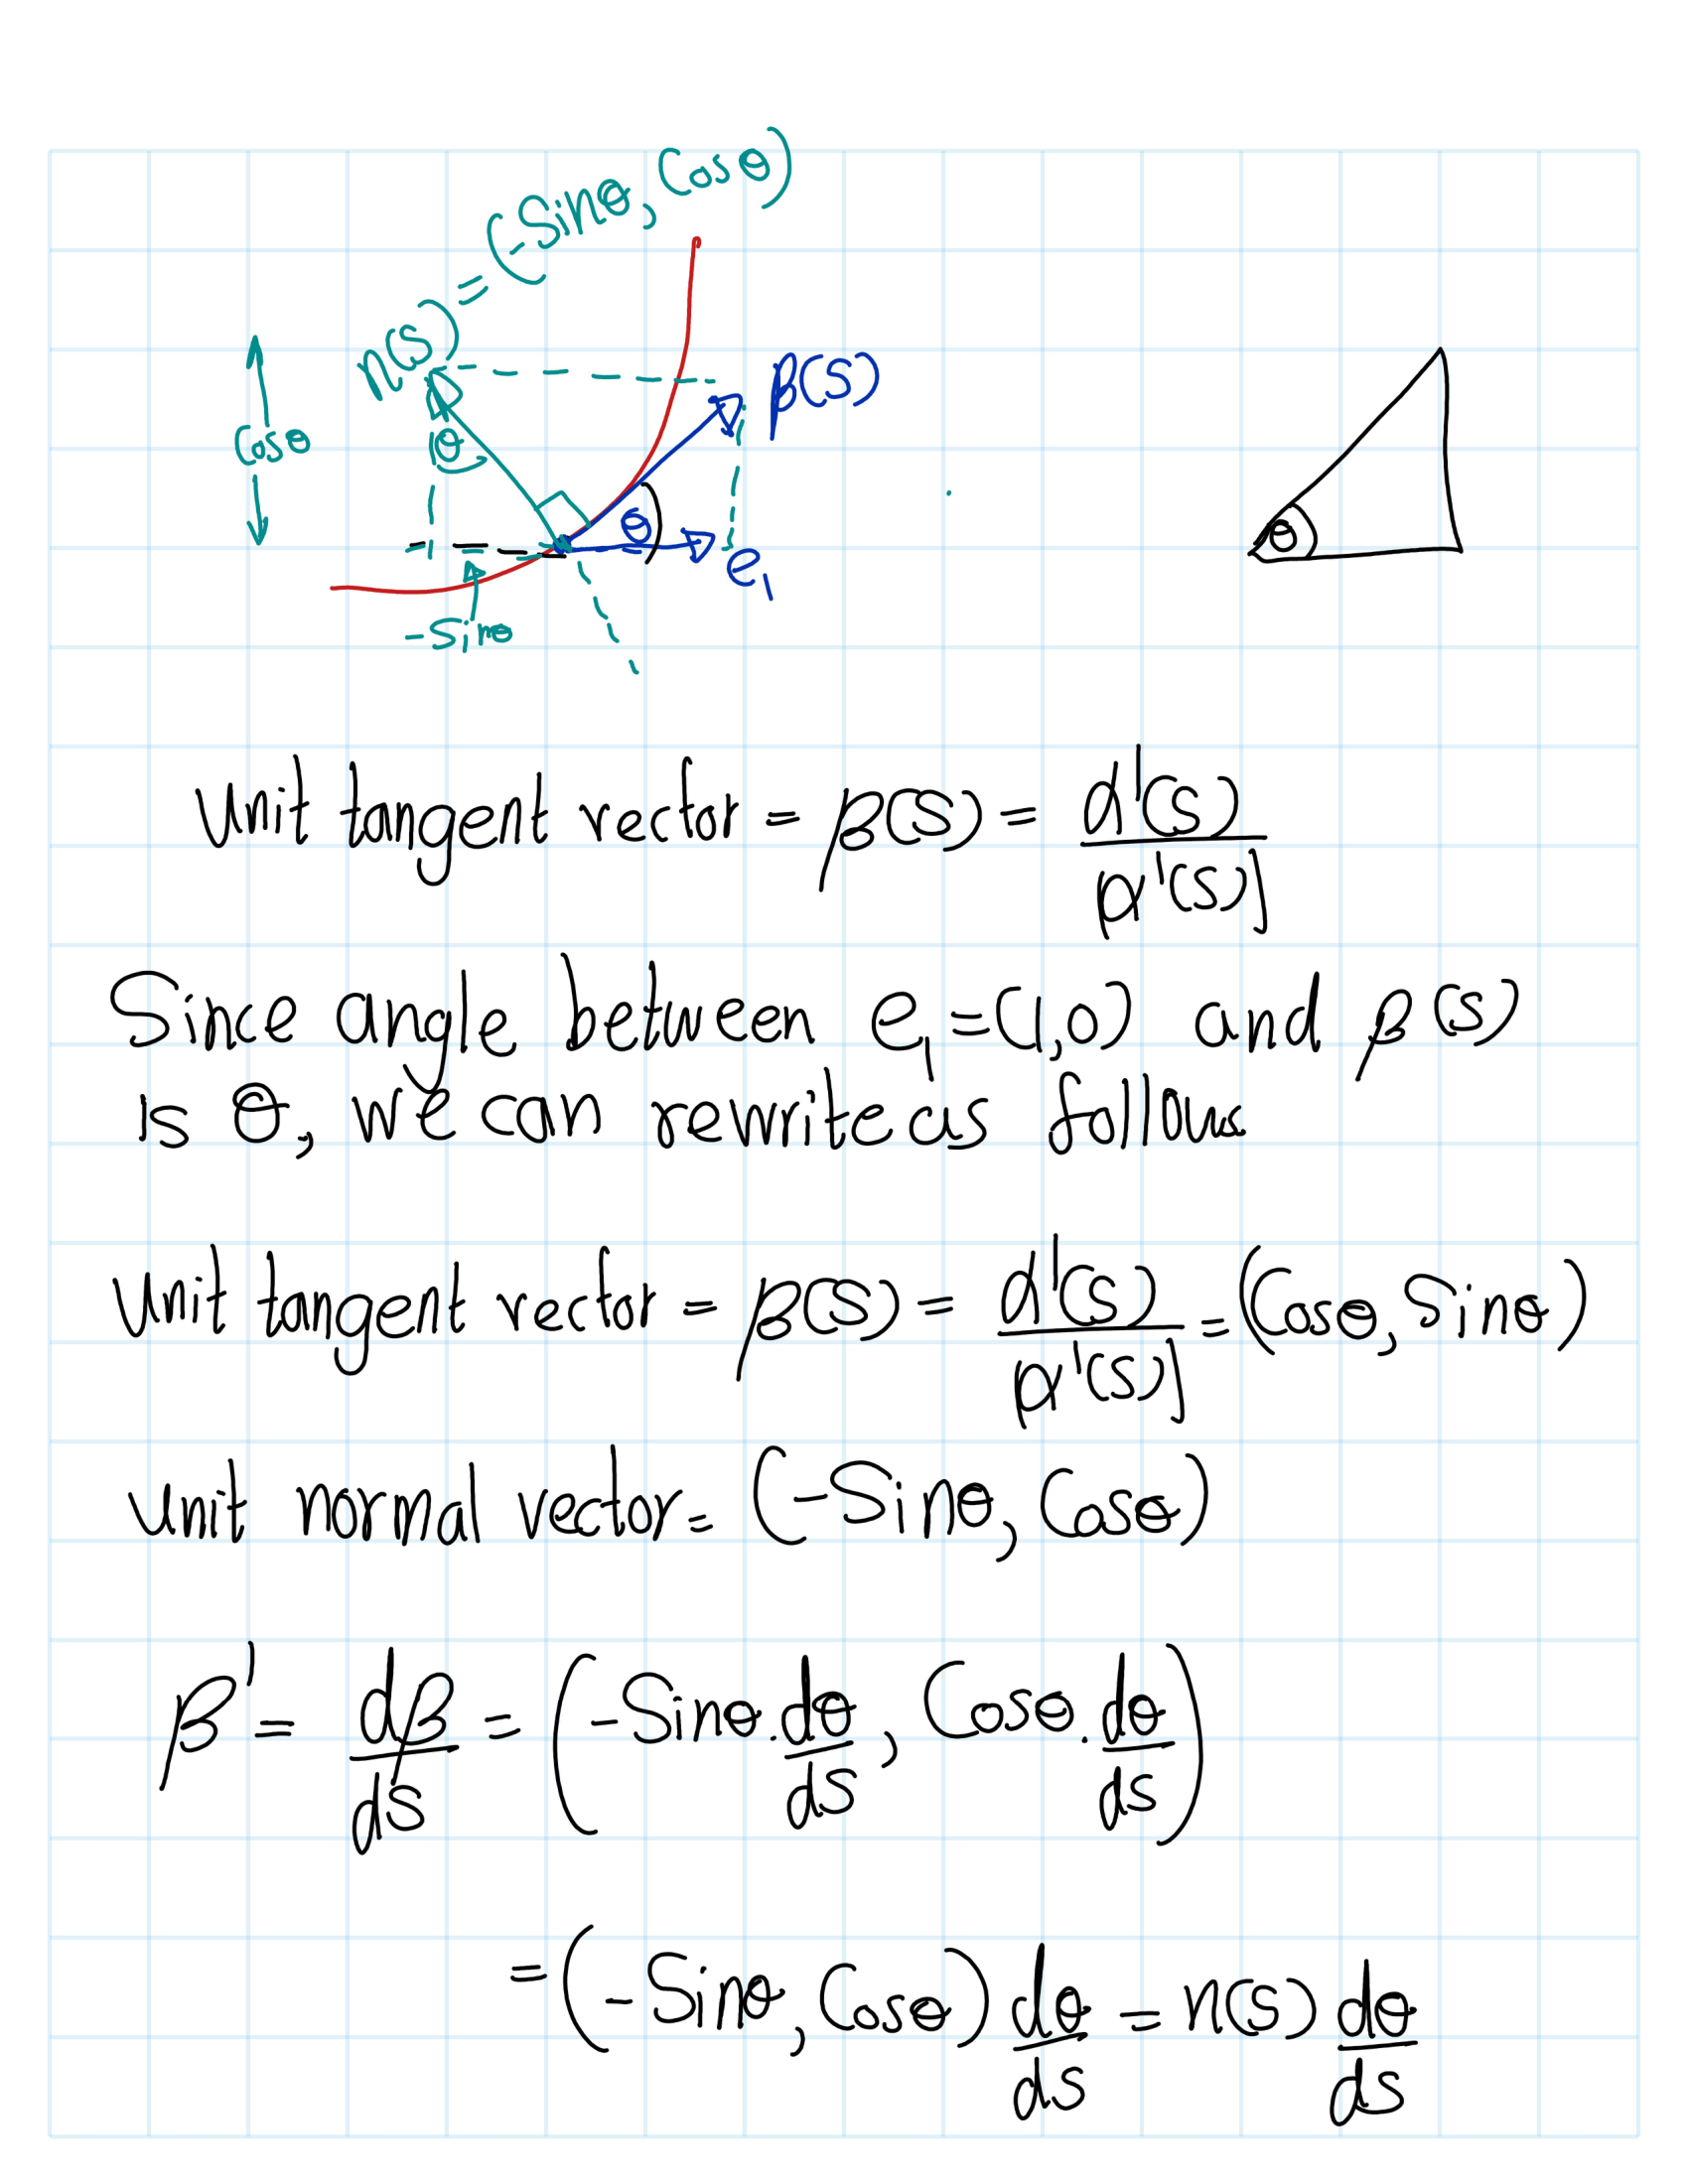 n(s) = (-Sinθ, Cosθ)
β(s)
Cosθ
θ
θ
θ
e₁
-Sinθ
Unit tangent vector = β(s) = α'(s) / |α'(s)|
Since angle between e₁=(1,0) and β(s)
is θ, we can rewrite as follows
Unit tangent vector = β(s) = α'(s) / |α'(s)| = (Cosθ, Sinθ)
Unit normal vector = (-Sinθ, Cosθ)
β' = dβ/ds = (-Sinθ.dθ/ds, Cosθ.dθ/ds)
= (-Sinθ, Cosθ) dθ/ds = n(s) dθ/ds